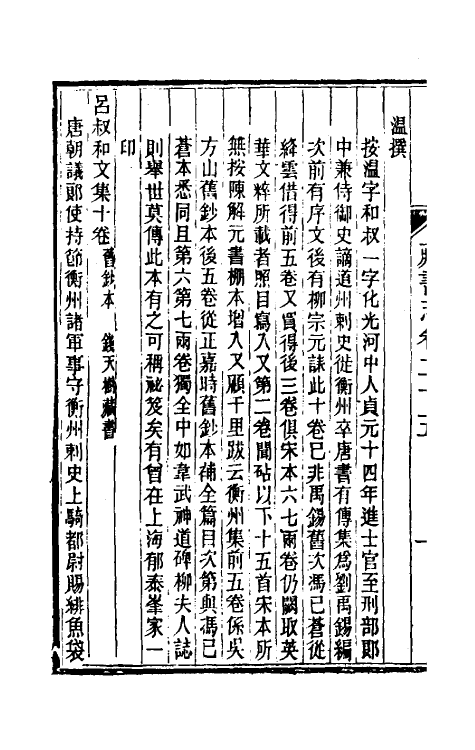 溫撰
按溫字和叔一字化光河中人貞元十四年進士官至刑部郎
中兼侍御史謫道州刺史徙衡州卒唐書有傳集為劉禹錫編
次前有序文後有柳宗元誄此十卷已非禹錫舊次馮已蒼從
絳雲借得前五卷又買得後三卷俱宋本六七兩卷仍闕取英
華文粹所載者照目寫入又第二卷聞砧以下十五首宋本所
無按陳解元書棚本增入又顧千里跋云衡州集前五卷係吳
方山舊鈔本後五卷從正嘉時舊鈔本補全篇目次第與馮已
蒼本悉同且第六第七兩卷獨全中如韋武神道碑柳夫人誌
則舉世莫傳此本有之可稱祕笈矣有曾在上海郁泰峯家一
印
呂叔和文集十卷 舊鈔本 錢天樹藏書
唐朝議郎使持節衡州諸軍事守衡州刺史上騎都尉賜緋魚袋
書志卷二十五
一